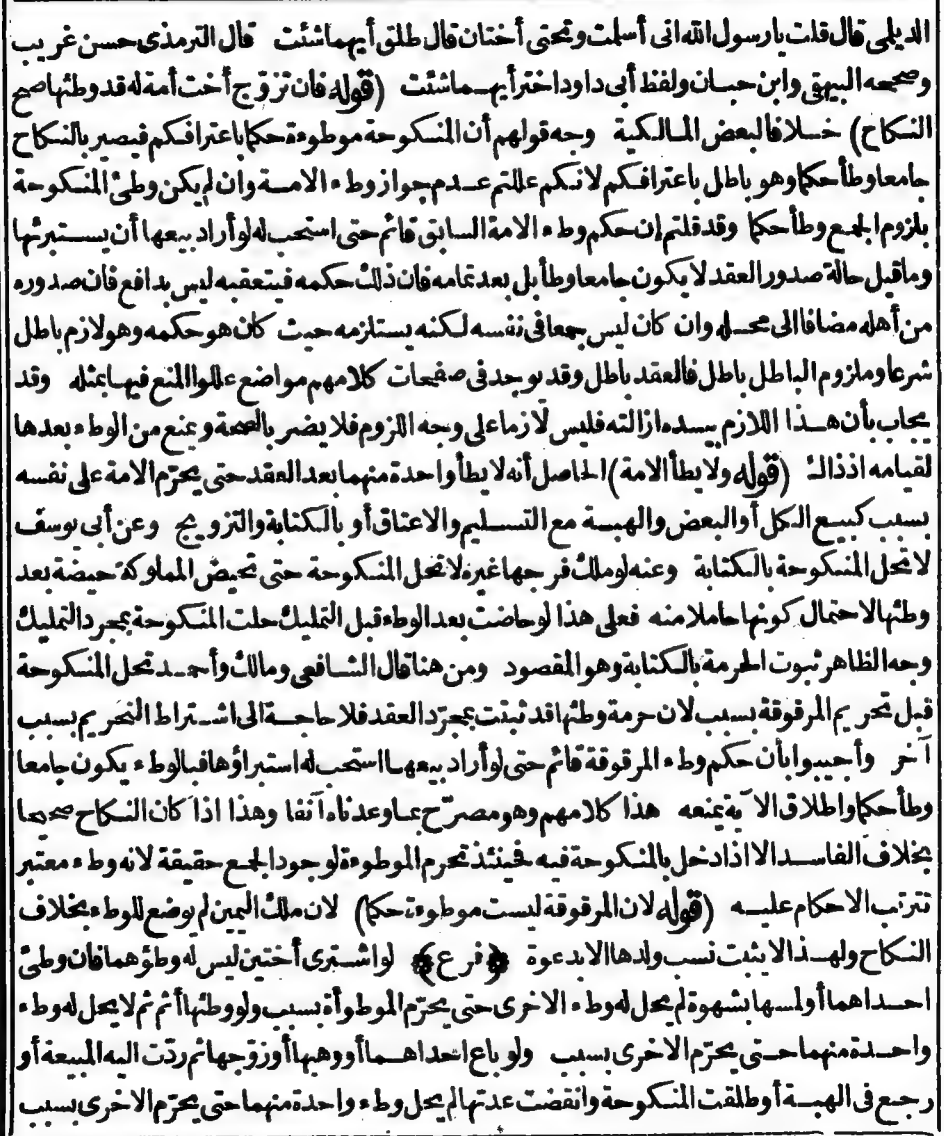 الديلمى قال قلت يارسول الله انى أسلمت وتحتى أختان قال طلق أيهما شئت قال الترمذى حسن غريب
وصححه البيهقى وابن حبان ولفظ أبى داود اختر أيهما شئت (قوله فان تزوّج أخت أمة له قد وطئها صح
النكاح) خلافا لبعض المالكية وجه قولهم أن المنكوحة موطوءة حكما باعترافكم فيصير بالنكاح
جامعا وطأ حكما وهو باطل باعترافكم لانكم عللتم عدم جواز وطء الامة وان لم يكن وطئ المنكوحة
بلزوم الجمع وطأ حكما وقد قلتم إن حكم وطء الامة السابق قائم حتى استحب له لو أراد بيعها أن يستبرئها
وما قيل حالة صدور العقد لا يكون جامعا وطأ بل بعد تمامه فان ذلك حكمه فيتعقبه ليس بدافع فان صدوره
من أهله مضافا الى محله وان كان ليس جمعا فى نفسه لكنه يستلزمه حيث كان هو حكمه وهو لازم باطل
شرعا وملزوم الباطل باطل فالعقد باطل وقد يوجد فى صفحات كلامهم مواضع عللوا المنع فيها بمثله وقد
يجاب بأن هذا اللازم بيده ازالته فليس لازما على وجه اللزوم فلا يضر بالصحة ويمنع من الوطء بعدها
لقيامه اذ ذاك (قوله ولا يطأ الامة) الحاصل أنه لا يطأ واحدة منهما بعد العقد حتى يحرّم الامة على نفسه
بسبب كبيع الكل أو البعض والهبة مع التسليم والاعتاق أو بالكتابة والتزويج وعن أبى يوسف
لا تحل المنكوحة بالكتابة وعنه لو ملك فرجها غيره لا تحل المنكوحة حتى تحيض المملوكة حيضة بعد
وطئها لاحتمال كونها حاملا منه فعلى هذا لو حاضت بعد الوطء قبل التمليك حلت المنكوحة بمجرد التمليك
وجه الظاهر ثبوت الحرمة بالكتابة وهو المقصود ومن هنا قال الشافعى ومالك وأحمد تحل المنكوحة
قبل تحريم المرقوقة بسبب لان حرمة وطئها قد ثبتت بمجرّد العقد فلا حاجة الى اشتراط التحريم بسبب
آخر وأجيبوا بأن حكم وطء المرقوقة قائم حتى لو أراد بيعها استحب له استبراؤها فبالوطء يكون جامعا
وطأ حكما واطلاق الآية يمنعه هذا كلامهم وهو مصرّح بما وعدناه آنفا وهذا اذا كان النكاح صحيحا
بخلاف الفاسد الا اذا دخل بالمنكوحة فيه فحينئذ تحرم الموطوءة لوجود الجمع حقيقة لانه وطء معتبر
تترتب الاحكام عليه (قوله لان المرقوقة ليست موطوءة حكما) لان ملك اليمين لم يوضع للوطء بخلاف
النكاح ولهذا لا يثبت نسب ولدها الا بدعوة ﴿فرع﴾ لو اشترى أختين ليس له وطؤهما فان وطئ
احداهما أو لمسها بشهوة لم يحل له وطء الاخرى حتى يحرّم الموطوأة بسبب ولو وطئها أثم ثم لا يحل له وطء
واحدة منهما حتى يحرّم الاخرى بسبب ولو باع احداهما أو وهبها أو زوّجها ثم ردّت اليه المبيعة أو
رجع فى الهبة أو طلقت المنكوحة وانقضت عدتها لم يحل وطء واحدة منهما حتى يحرّم الاخرى بسبب